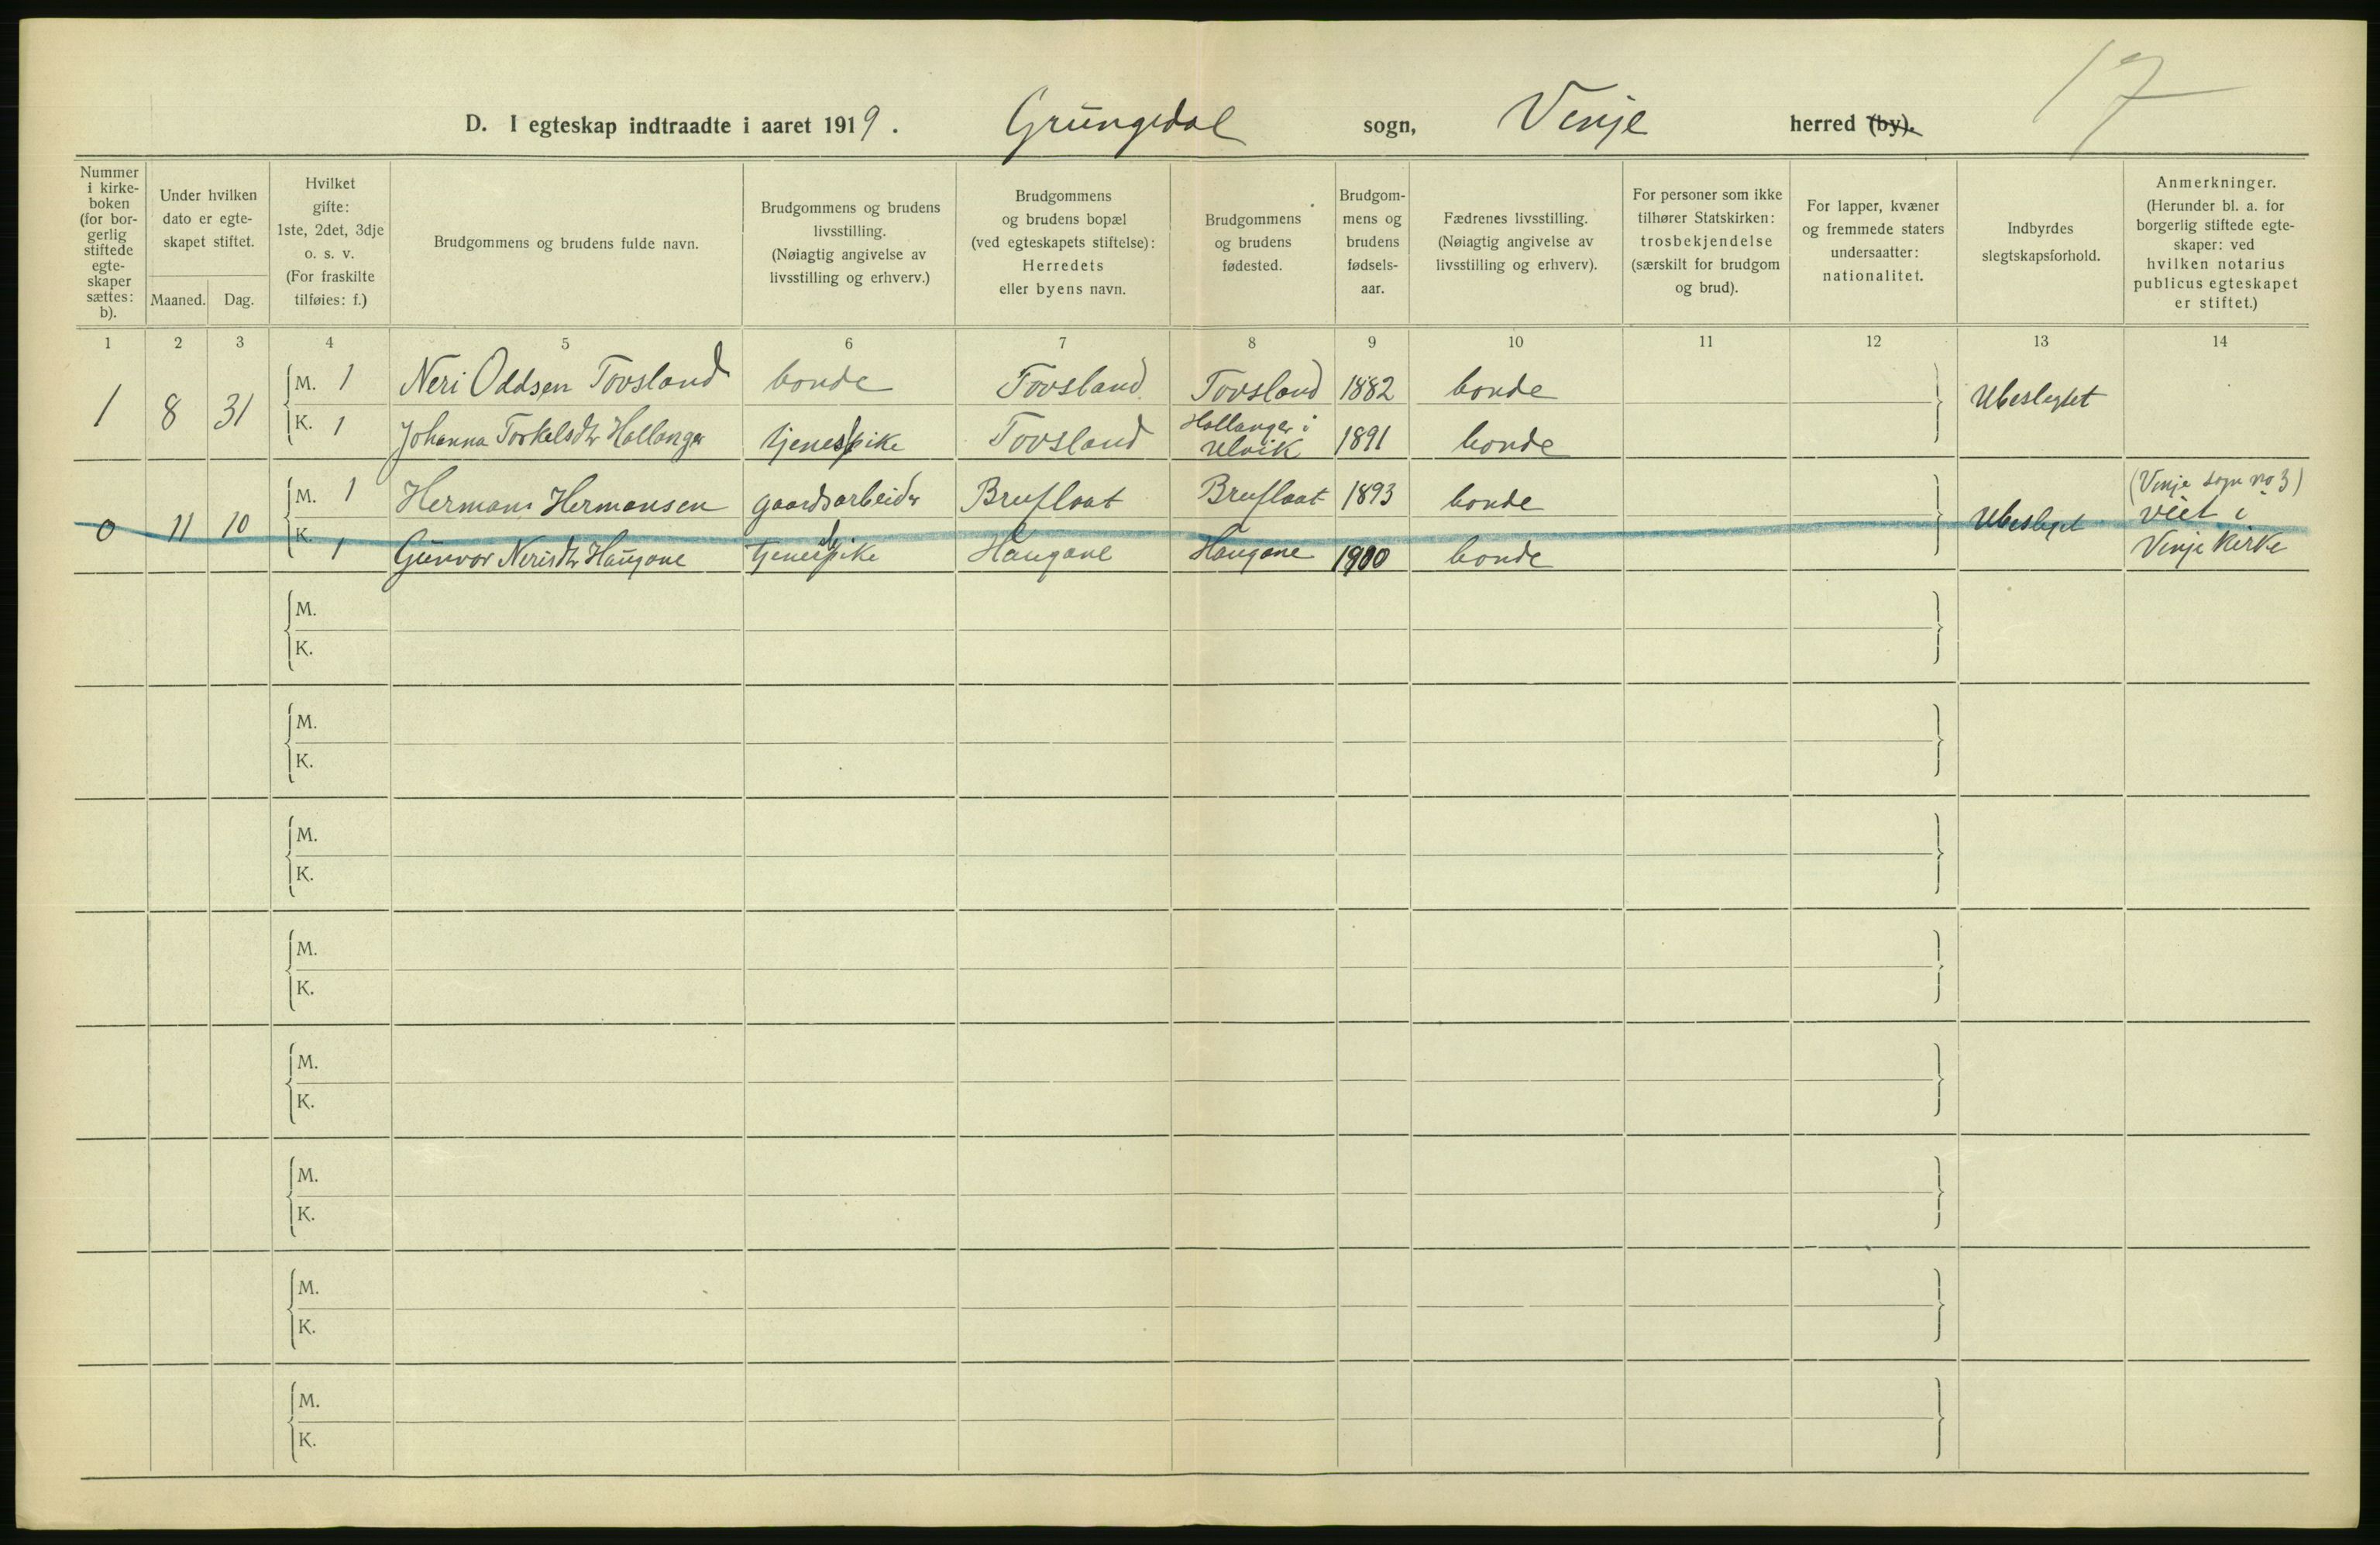 17
D. I egteskap indtraadte i aaret 1919. Grungedal sogn, Vinje herred (by).
Nummer
i kirke-
boken
(for bor-
gerlig
stiftede
egte-
skaper
sættes:
b).
Under hvilken
dato er egte-
skapet stiftet.
Maaned. Dag.
Hvilket
gifte:
1ste, 2det, 3dje
o. s. v.
(For fraskilte
tilføies: f.)
Brudgommens og brudens fulde navn.
Brudgommens og brudens
livsstilling.
(Nøiagtig angivelse av
livsstilling og erhverv.)
Brudgommens
og brudens bopæl
(ved egteskapets stiftelse):
Herredets
eller byens navn.
Brudgommens
og brudens
fødested.
Brudgom-
mens og
brudens
fødsels-
aar.
Fædrenes livsstilling.
(Nøiagtig angivelse av
livsstilling og erhverv).
For personer som ikke
tilhører Statskirken:
trosbekjendelse
(særskilt for brudgom
og brud).
For lapper, kvæner
og fremmede staters
undersaatter:
nationalitet.
Indbyrdes
slegtskapsforhold.
Anmerkninger.
(Herunder bl. a. for
borgerlig stiftede egte-
skaper: ved
hvilken notarius
publicus egteskapet
er stiftet.)
1 2 3 4 5 6 7 8 9 10 11 12 13 14
M. 1 Neri Oddsen Tovsland bonde Tovsland Tovsland 1882 bonde
1 8 31 Ubeslegtet
K. 1 Johanna Torkelsdtr Hallanger tjenespike Tovsland Hallanger i Ulvik 1891 bonde
M. 1 Herman Hermansen gaardsarbeider Bruflaat Bruflaat 1893 bonde
0 11 10 Ubeslegtet
(Vinje sogn no 3)
viet i
Vinje kirke
K. 1 Gunvor Nerisdtr Haugane tjenespike Haugane Haugane 1900 bonde
M.
K.
M.
K.
M.
K.
M.
K.
M.
K.
M.
K.
M.
K.
M.
K.